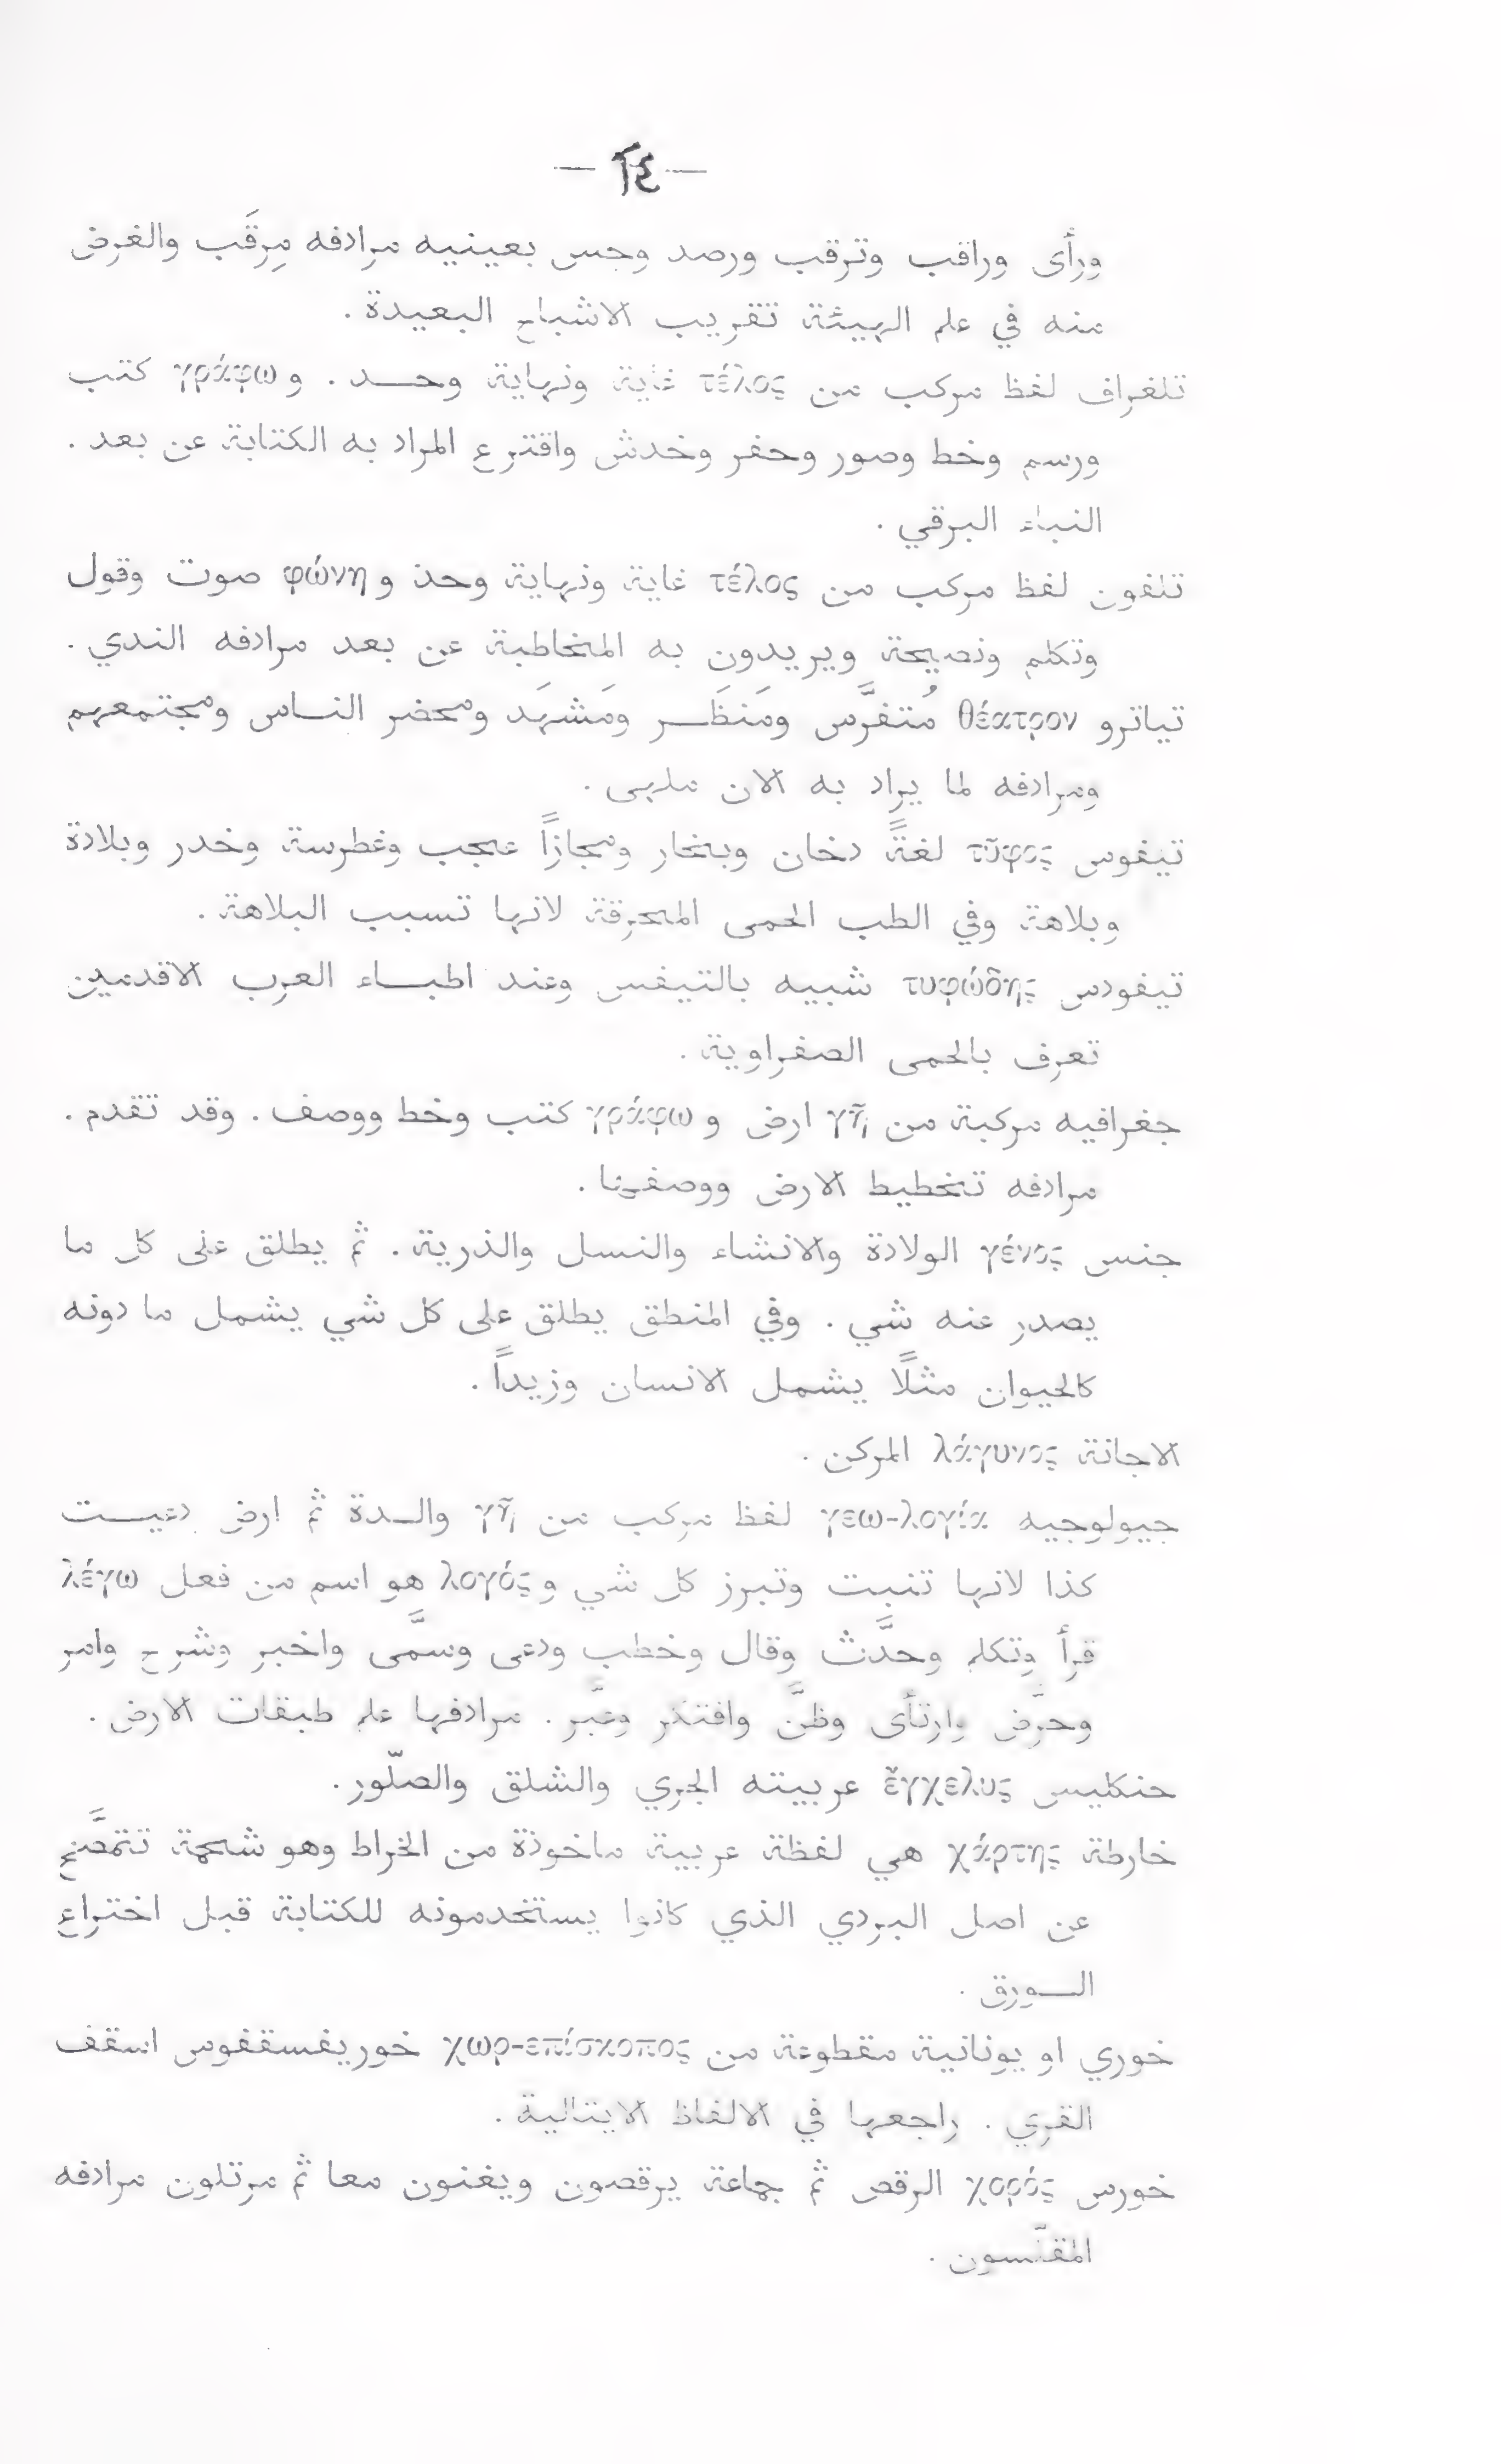 — ٢٤ —
ورأى وراقب وترقب ورصد وجس بعينيه مرادفه مِرقَب والغرض
منه في علم الهيئة تقريب الاشباح البعيدة .
تلغراف لفظ مركب من τέλος غاية ونهاية وحـــد . و γράφω كتب
ورسم وخط وصور وحفر وخدش واقترع المراد به الكتابة عن بعد .
النباء البرقي .
تلفون لفظ مركب من τέλος غاية ونهاية وحد و φώνη صوت وقول
وتكلم ونصيحة ويريدون به المخاطبة عن بعد مرادفه الندي .
تياترو θέατρον مُتفرَّس ومَنظَـــر ومَشهَد ومحضر النــاس ومجتمعهم
ومرادفه لما يراد به الان ملهى .
تيفوس τῦφος لغةً دخان وبخار ومجازاً عجب وغطرسة وخدر وبلادة
وبلاهة وفي الطب الحمى المحرقة لانها تسبب البلاهة .
تيفودس τυφώδης شبيه بالتيفس وعند اطبـــاء العرب الاقدمين
تعرف بالحمى الصفراوية .
جغرافيه مركبة من γῆ ارض و γράφω كتب وخط ووصف . وقد تقدم .
مرادفه تخطيط الارض ووصفها .
جنس γένος الولادة والانشاء والنسل والذرية . ثم يطلق على كل ما
يصدر عنه شي . وفي المنطق يطلق على كل شي يشمل ما دونه
كالحيوان مثلًا يشمل الانسان وزيداً .
الاجانة λάγυνος المركن .
جيولوجيه γεω-λογία لفظ مركب من γῆ والــدة ثم ارض دعيـــت
كذا لانها تنبت وتبرز كل شي و λογός هو اسم من فعل λέγω
قرأ وتكلم وحدَّث وقال وخطب ودعى وسمَّى واخبر وشرح وامر
وحرَّض وارتأى وظنَّ وافتكر وعبَّر . مرادفها علم طبقات الارض .
حنكليس ἔγχελυς عربيته الجري والشلق والصلّور .
خارطة χάρτης هي لفظة عربية ماخوذة من الخراط وهو شحمة تتمصَّخ
عن اصل البردي الذي كانوا يستخدمونه للكتابة قبل اختراع
الـــورق .
خوري او يونانية مقطوعة من χωρ-επίσκοπος خوريفسقفوس اسقف
القرى . راجعها في الالفاظ الايتالية .
خورس χορός الرقص ثم جماعة يرقصون ويغنون معا ثم مرتلون مرادفه
المقلّسون .